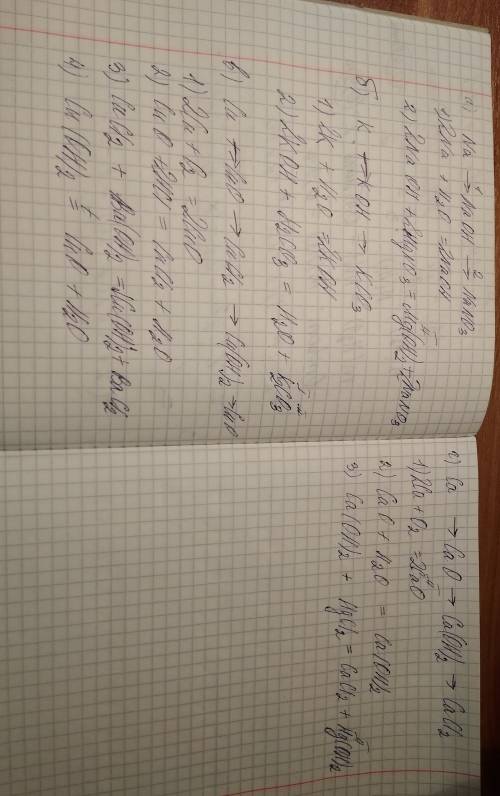 а) Na →¹ NaOH →² NaNO₃
1) 2Na + H₂O = 2NaOH
2) 2NaOH + MgNO₃ = Mg(OH)₂ + 2NaNO₃
Б) K → KOH → K₂CO₃
1) 2K + H₂O = 2KOH
2) 2KOH + H₂CO₃ = H₂O + K₂CO₃
в) Cu → CuO → CuCl₂ → Cu(OH)₂ → CuO
1) 2Cu + O₂ = 2CuO
2) CuO + 2HCl = CuCl₂ + H₂O
3) CuCl₂ + Ba(OH)₂ = Cu(OH)₂ + BaCl₂
4) Cu(OH)₂ =ᵗ CuO + H₂O
г) Ca → CaO → Ca(OH)₂ → CaCl₂
1) 2Ca + O₂ = 2CaO
2) CaO + H₂O = Ca(OH)₂
3) Ca(OH)₂ + HgCl₂ = CaCl₂ + Hg(OH)₂